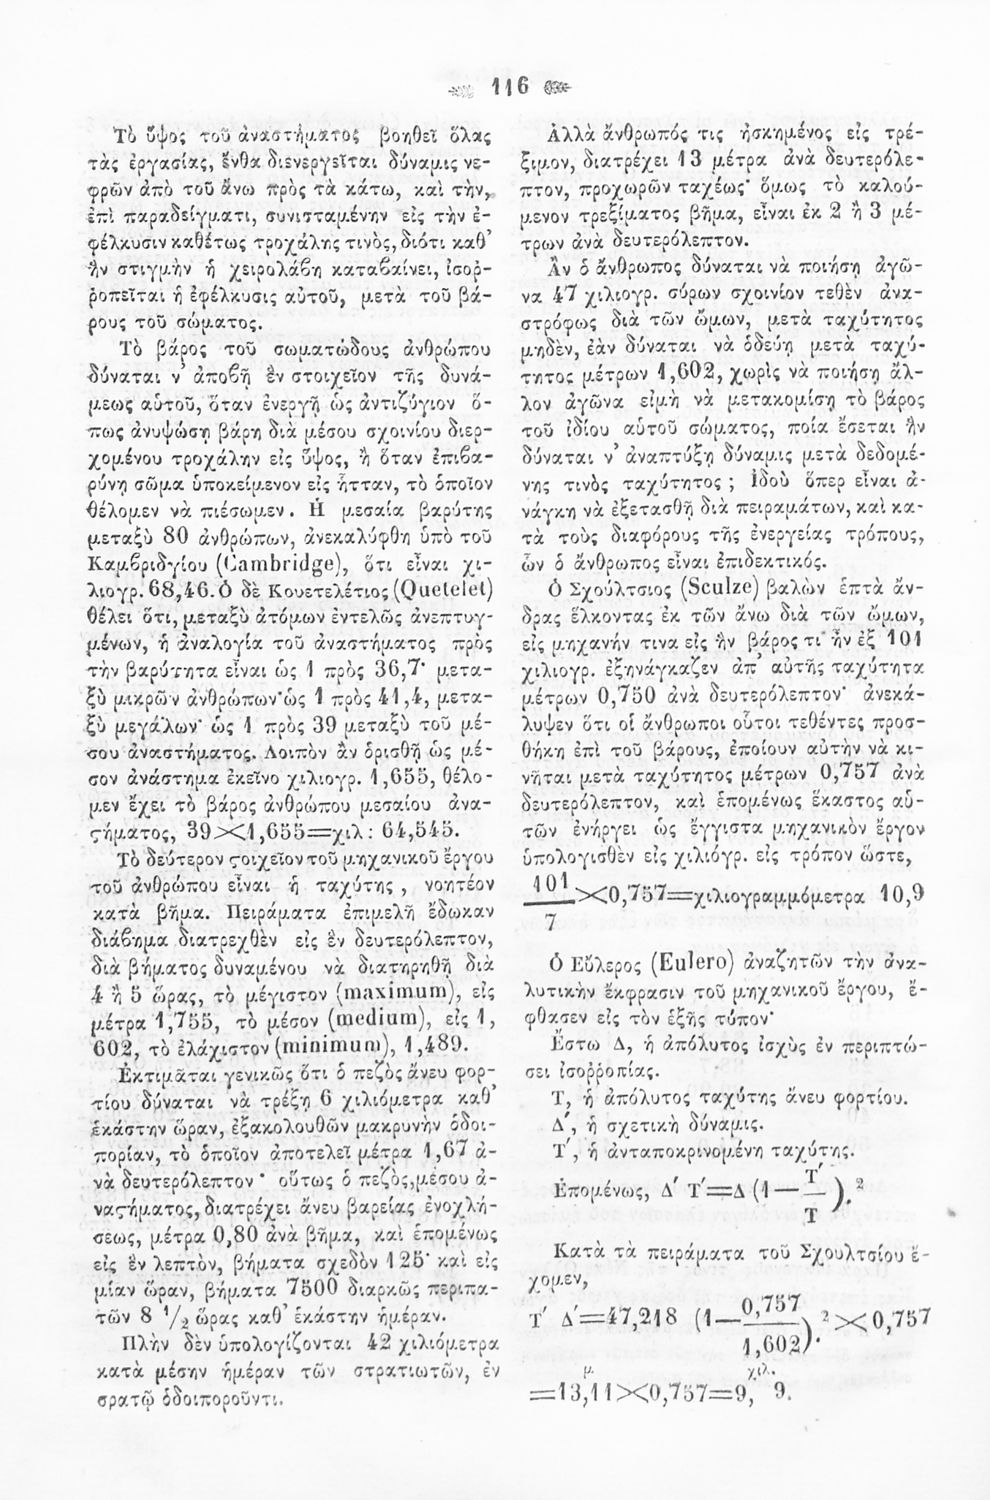 116
Τὸ ὕψος τοῦ ἀναστήματος βοηθεῖ ὅλας
τὰς ἐργασίας, ἔνθα διενεργεῖται δύναμις νε-
φρῶν ἀπὸ τοῦ ἄνω πρὸς τὰ κάτω, καὶ τὴν,
ἐπὶ παραδείγματι, συνισταμένην εἰς τὴν ἐ-
φέλκυσιν καθέτως τροχάλης τινὸς, διότι καθ'
ἣν στιγμὴν ἡ χειρολάβη καταβαίνει, ἰσορ-
ῥοπεῖται ἡ ἐφέλκυσις αὐτοῦ, μετὰ τοῦ βά-
ρους τοῦ σώματος.
Τὸ βάρος τοῦ σωματώδους ἀνθρώπου
δύναται ν' ἀποβῇ ἓν στοιχεῖον τῆς δυνά-
μεως αὑτοῦ, ὅταν ἐνεργῇ ὡς ἀντιζύγιον ὅ-
πως ἀνυψώσῃ βάρη διὰ μέσου σχοινίου διερ-
χομένου τροχάλην εἰς ὕψος, ἢ ὅταν ἐπιβα-
ρύνῃ σῶμα ὑποκείμενον εἰς ἧτταν, τὸ ὁποῖον
θέλομεν νὰ πιέσωμεν. Ἡ μεσαία βαρύτης
μεταξὺ 80 ἀνθρώπων, ἀνεκαλύφθη ὑπὸ τοῦ
Καμβριδγίου (Cambridge), ὅτι εἶναι χι-
λιογρ. 68,46. Ὁ δὲ Κουετελέτιος (Quetelet)
θέλει ὅτι, μεταξὺ ἀτόμων ἐντελῶς ἀνεπτυγ-
μένων, ἡ ἀναλογία τοῦ ἀναστήματος πρὸς
τὴν βαρύτητα εἶναι ὡς 1 πρὸς 36,7· μετα-
ξὺ μικρῶν ἀνθρώπων· ὡς 1 πρὸς 41,4, μετα-
ξὺ μεγάλων· ὡς 1 πρὸς 39 μεταξὺ τοῦ μέ-
σου ἀναστήματος. Λοιπὸν ἂν ὁρισθῇ ὡς μέ-
σον ἀνάστημα ἐκεῖνο χιλιογρ. 1,655, θέλο-
μεν ἔχει τὸ βάρος ἀνθρώπου μεσαίου ἀνα-
ϛήματος, 39×1,655=χιλ: 64,545.
Τὸ δεύτερον ϛοιχεῖον τοῦ μηχανικοῦ ἔργου
τοῦ ἀνθρώπου εἶναι ἡ ταχύτης, νοητέον
κατὰ βῆμα. Πειράματα ἐπιμελῆ ἔδωκαν
διάβημα διατρεχθὲν εἰς ἓν δευτερόλεπτον,
διὰ βήματος δυναμένου νὰ διατηρηθῇ διὰ
4 ἢ 5 ὥρας, τὸ μέγιστον (maximum), εἰς
μέτρα 1,755, τὸ μέσον (medium), εἰς 1,
602, τὸ ἐλάχιστον (minimum), 1,489.
Ἐκτιμᾶται γενικῶς ὅτι ὁ πεζὸς ἄνευ φορ-
τίου δύναται νὰ τρέξῃ 6 χιλιόμετρα καθ'
ἑκάστην ὥραν, ἐξακολουθῶν μακρυνὴν ὁδοι-
πορίαν, τὸ ὁποῖον ἀποτελεῖ μέτρα 1,67 ἀ-
νὰ δευτερόλεπτον· οὕτως ὁ πεζὸς, μέσου ἀ-
ναϛήματος, διατρέχει ἄνευ βαρείας ἐνοχλή-
σεως, μέτρα 0,80 ἀνὰ βῆμα, καὶ ἑπομένως
εἰς ἓν λεπτὸν, βήματα σχεδὸν 125· καὶ εἰς
μίαν ὥραν, βήματα 7500 διαρκῶς περιπα-
τῶν 8 1/2 ὥρας καθ' ἑκάστην ἡμέραν.
Πλὴν δὲν ὑπολογίζονται 42 χιλιόμετρα
κατὰ μέσην ἡμέραν τῶν στρατιωτῶν, ἐν
σρατῷ ὁδοιποροῦντι.
Ἀλλὰ ἄνθρωπός τις ἠσκημένος εἰς τρέ-
ξιμον, διατρέχει 13 μέτρα ἀνὰ δευτερόλε-
πτον, προχωρῶν ταχέως· ὅμως τὸ καλού-
μενον τρεξίματος βῆμα, εἶναι ἐκ 2 ἢ 3 μέ-
τρων ἀνὰ δευτερόλεπτον.
Ἂν ὁ ἄνθρωπος δύναται νὰ ποιήσῃ ἀγῶ-
να 47 χιλιογρ. σύρων σχοινίον τεθὲν ἀνα-
στρόφως διὰ τῶν ὤμων, μετὰ ταχύτητος
μηδὲν, ἐὰν δύναται νὰ ὁδεύῃ μετὰ ταχύ-
τητος μέτρων 1,602, χωρὶς νὰ ποιήσῃ ἄλ-
λον ἀγῶνα εἰμὴ νὰ μετακομίσῃ τὸ βάρος
τοῦ ἰδίου αὑτοῦ σώματος, ποία ἔσεται ἣν
δύναται ν' ἀναπτύξῃ δύναμις μετὰ δεδομέ-
νης τινὸς ταχύτητος; Ἰδοὺ ὅπερ εἶναι ἀ-
νάγκη νὰ ἐξετασθῇ διὰ πειραμάτων, καὶ κα-
τὰ τοὺς διαφόρους τῆς ἐνεργείας τρόπους,
ὧν ὁ ἄνθρωπος εἶναι ἐπιδεκτικός.
Ὁ Σχούλτσιος (Sculze) βαλὼν ἑπτὰ ἄν-
δρας ἕλκοντας ἐκ τῶν ἄνω διὰ τῶν ὤμων,
εἰς μηχανήν τινα εἰς ἣν βάρος τι ἦν ἐξ 101
χιλιογρ. ἐξηνάγκαζεν ἀπ' αὐτῆς ταχύτητα
μέτρων 0,750 ἀνὰ δευτερόλεπτον· ἀνεκά-
λυψεν ὅτι οἱ ἄνθρωποι οὗτοι τεθέντες προσ-
θήκῃ ἐπὶ τοῦ βάρους, ἐποίουν αὐτὴν νὰ κι-
νῆται μετὰ ταχύτητος μέτρων 0,757 ἀνὰ
δευτερόλεπτον, καὶ ἑπομένως ἕκαστος αὐ-
τῶν ἐνήργει ὡς ἔγγιστα μηχανικὸν ἔργον
ὑπολογισθὲν εἰς χιλιόγρ. εἰς τρόπον ὥστε,
101
×0,757=χιλιογραμμόμετρα 10,9
7
Ὁ Εὔλερος (Eulero) ἀναζητῶν τὴν ἀνα-
λυτικὴν ἔκφρασιν τοῦ μηχανικοῦ ἔργου, ἔ-
φθασεν εἰς τὸν ἑξῆς τύπον·
Ἔστω Δ, ἡ ἀπόλυτος ἰσχὺς ἐν περιπτώ-
σει ἰσοῤῥοπίας.
Τ, ἡ ἀπόλυτος ταχύτης ἄνευ φορτίου.
Δ', ἡ σχετικὴ δύναμις.
Τ', ἡ ἀνταποκρινομένη ταχύτης.
Τ'
Ἑπομένως, Δ' Τ'=Δ (1— — ).2
Τ
Κατὰ τὰ πειράματα τοῦ Σχουλτσίου ἔ-
χομεν,
0,757
Τ' Δ'=47,218 (1— — )2×0,757
1,602
μ. χιλ.
=13,11×0,757=9, 9.